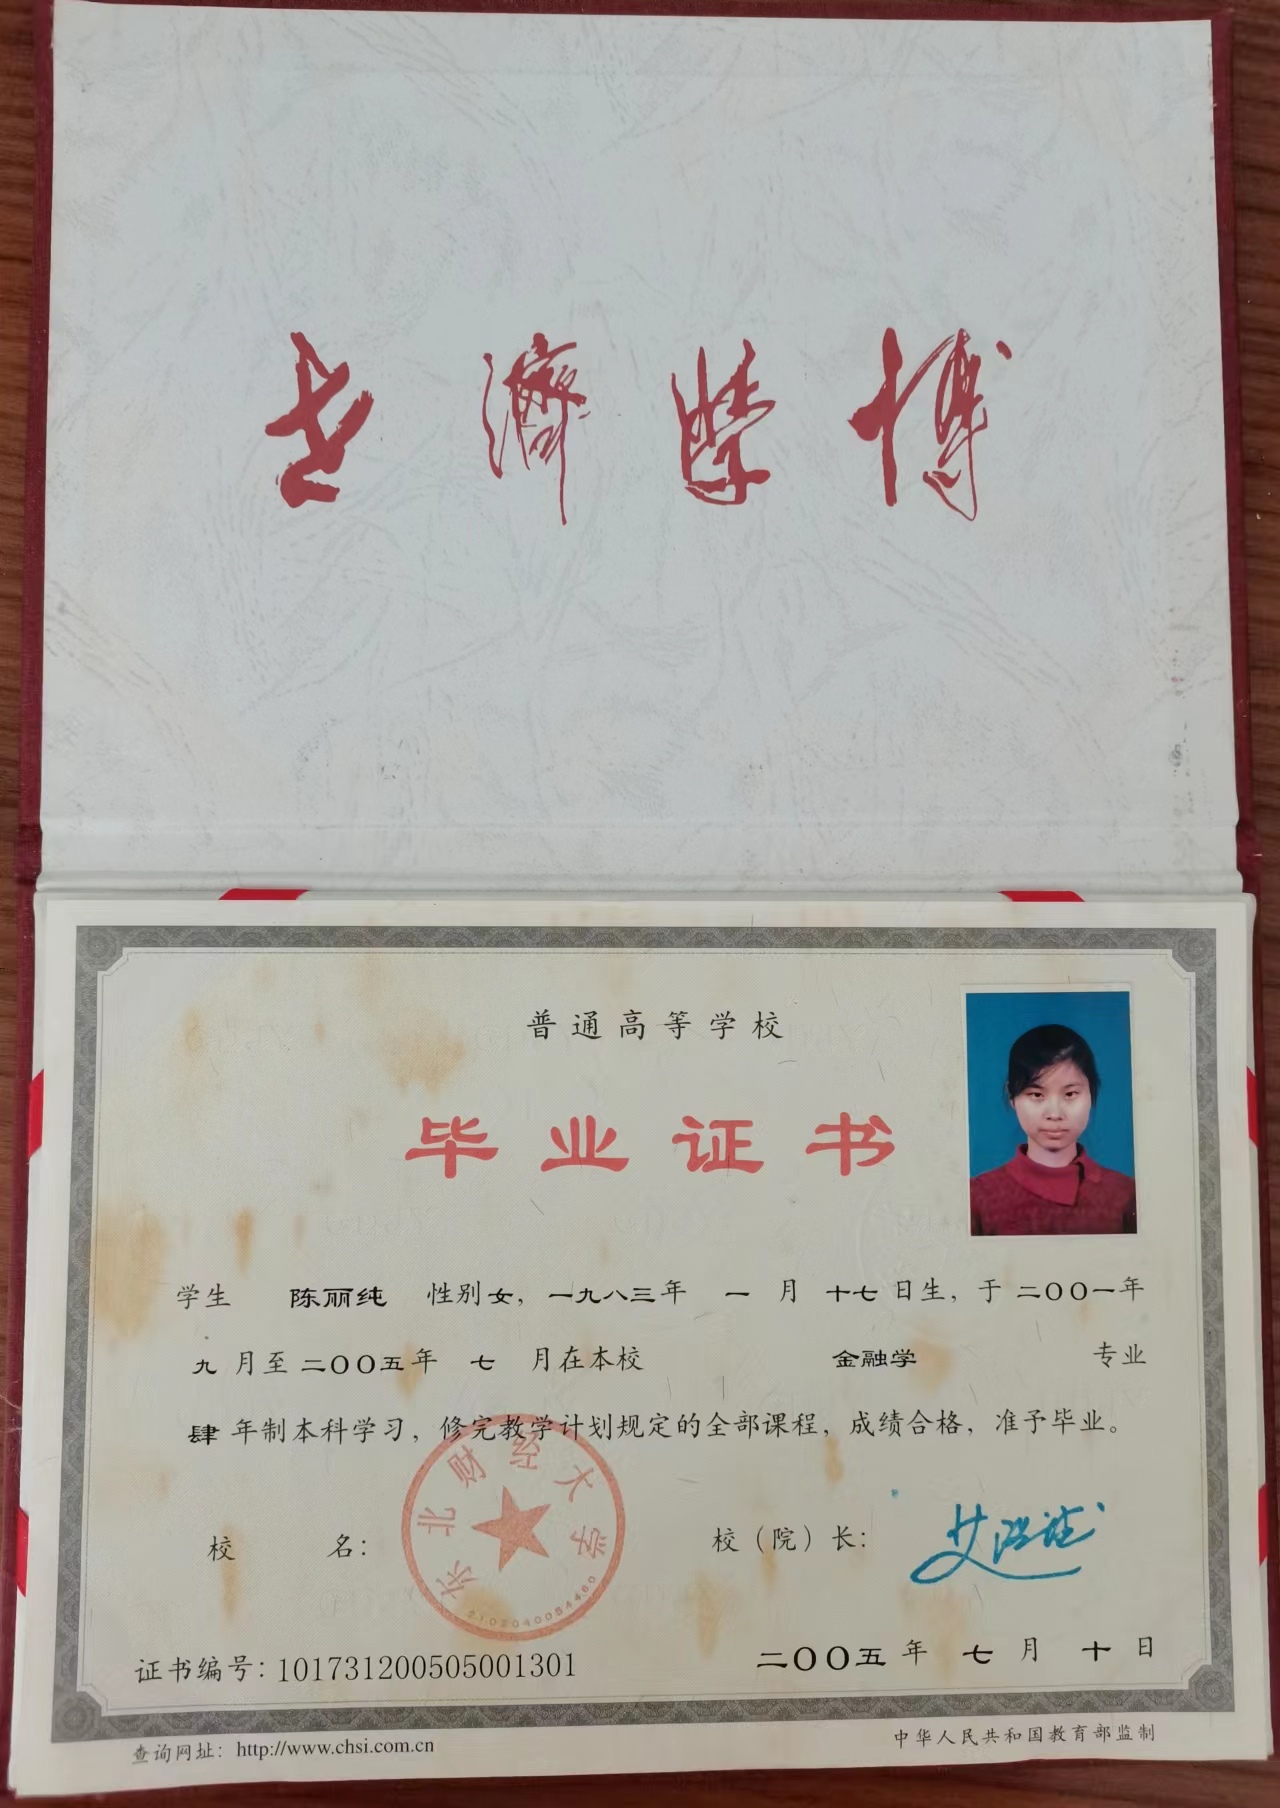 博学济世
普通高等学校
毕业证书
学生 陈丽纯 性别女，一九八三年 一 月 十七日生，于二〇〇一年
九 月至二〇〇五年 七 月在本校 金融学 专业
肆 年制本科学习，修完教学计划规定的全部课程，成绩合格，准予毕业。
校 名：
东北财经大学
校（院）长：
证书编号：101731200505001301
二〇〇五年 七 月 十 日
查询网址：http://www.chsi.com.cn
中华人民共和国教育部监制